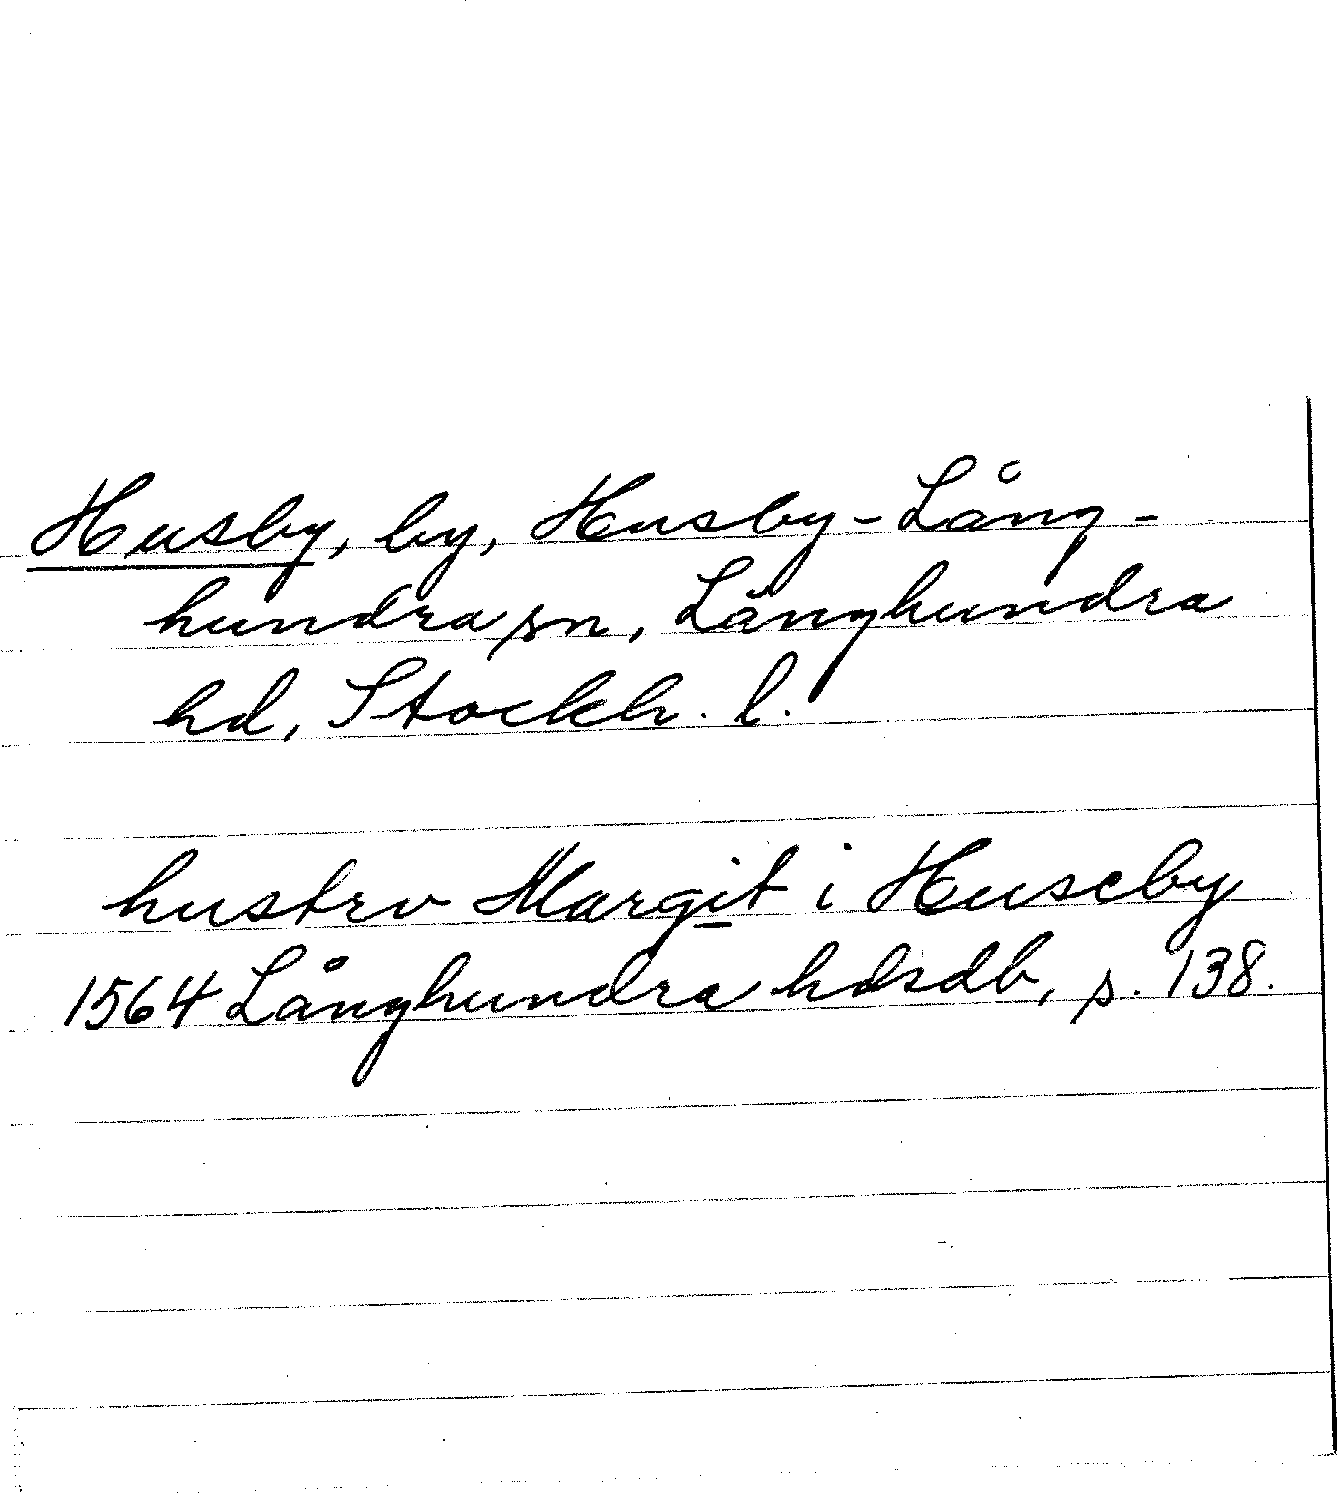 Husby, by, Husby-Lång-
hundra sn, Långhundra
hd, Stockh. l.
hustrv Margit i Huseby
1564 Långhundra hdsdb, s. 138.